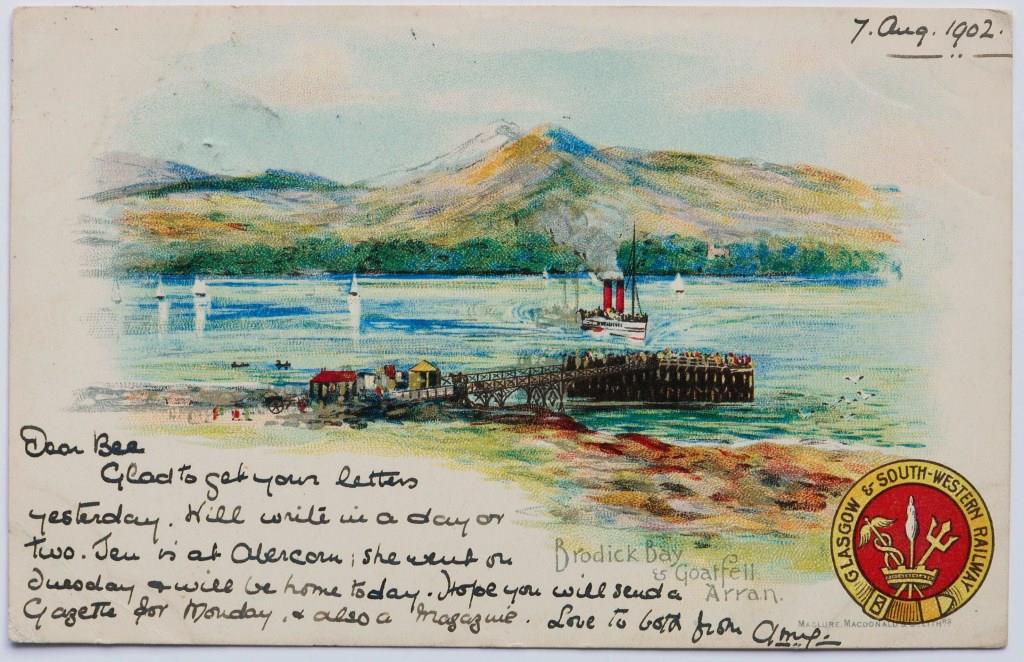 7. Aug. 1902.
Dear Bee
Glad to get your letters
yesterday. Will write in a day or
two. Jen is at Abercorn; she went on
Tuesday & will be home today. Hope you will send a
Gazette for Monday, & also a Magazine. Love to both from Amy.
Brodick Bay
& Goatfell
Arran.
GLASGOW & SOUTH-WESTERN RAILWAY
MACLURE, MACDONALD & CO. LITHRS